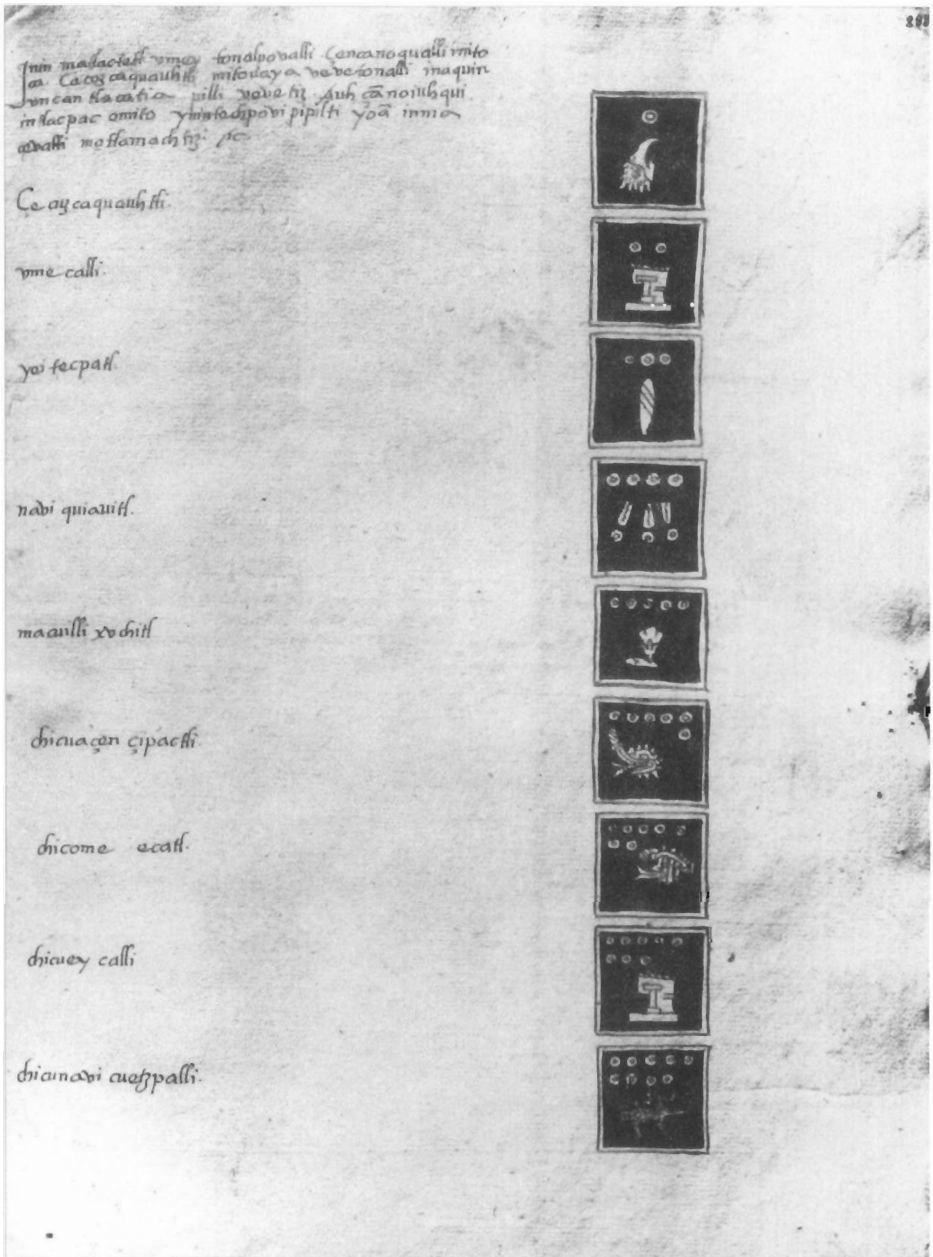 Inin matlactetl vmey tonalpovalli Çencanoqualli mito
a. Ce cozcaquauhtli mitoaya veve tonalli in aquin
vncan tlacatia pilli veve tiz. Auh çã no iuhqui
intlacpac omito ynin techpovi pipilti yoã in ma
çevalti motlamachtiz.
Çe cozcaquauhtli.
vme calli.
yei tecpatl.
navi quiauitl.
macuilli xochitl
chicuaçen çipactli.
chicome ecatl.
chicuey calli
chicunavi cuetzpalli.